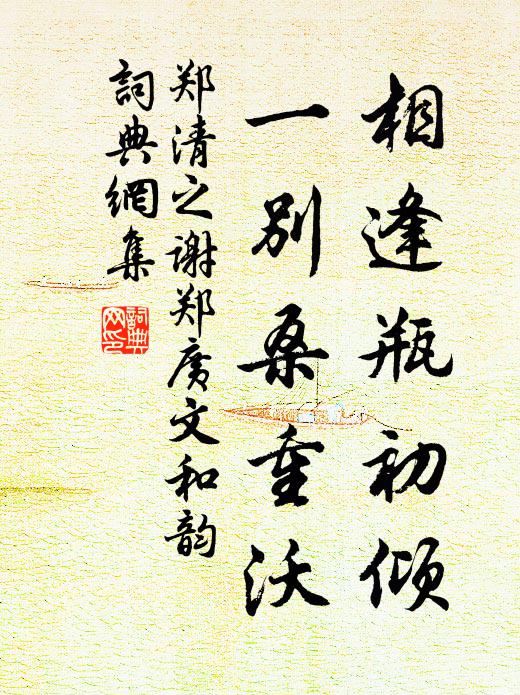 相逢瓶初倾
一别桑重沃
郑清之谢郑广文和韵
詞典網集
詞典网印